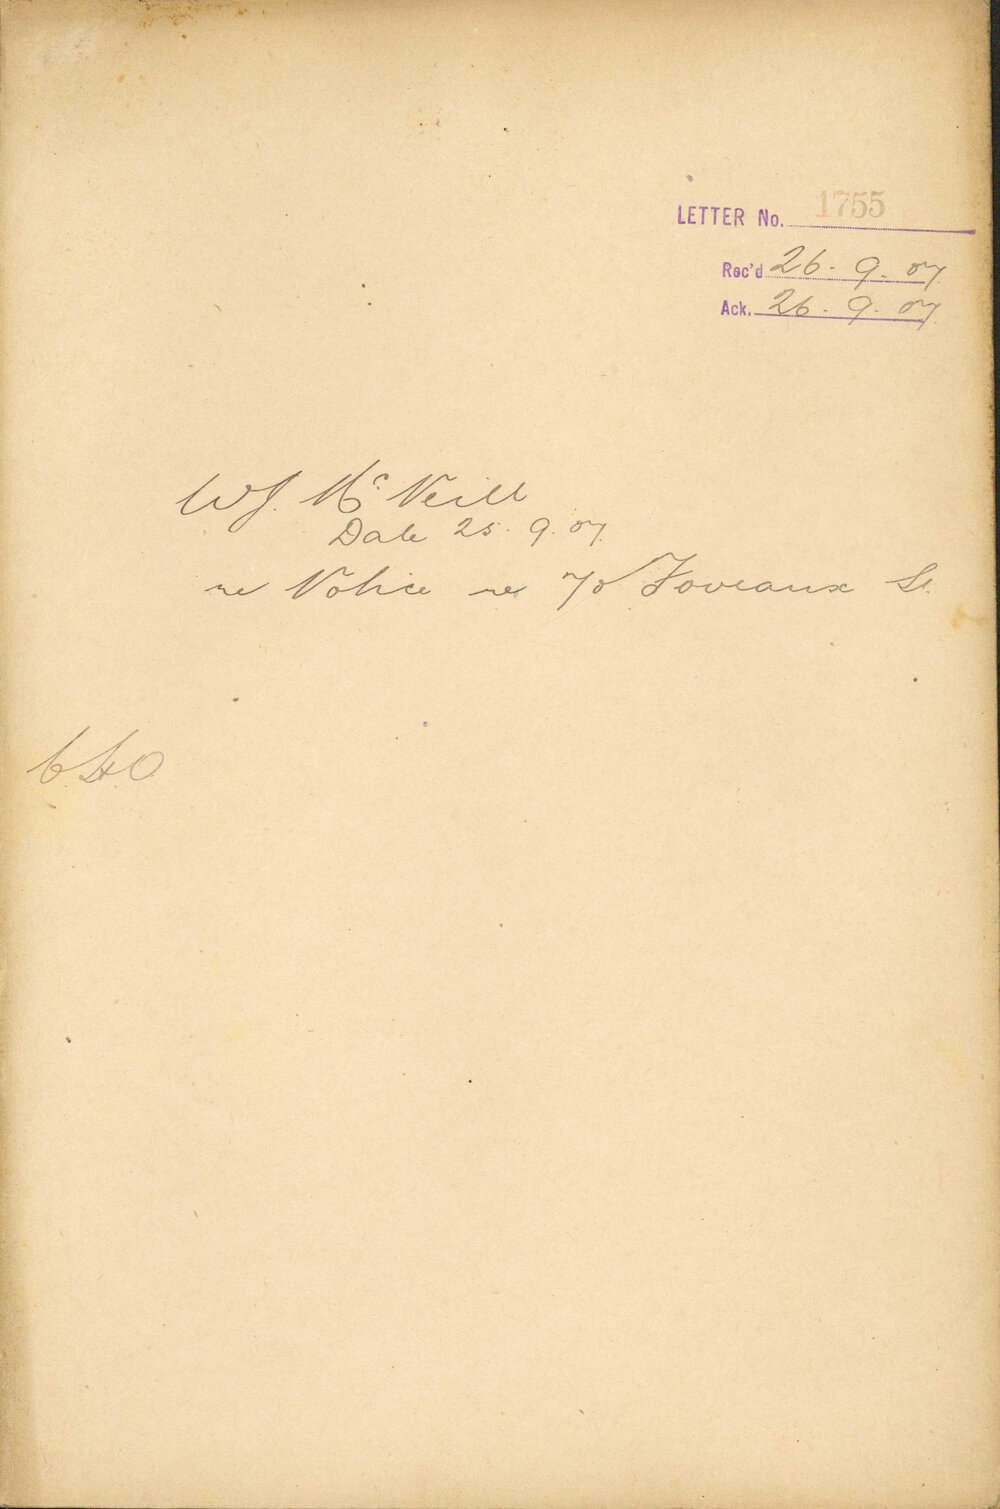 LETTER No. 1755
Rec'd 26. 9. 07
Ack. 26. 9. 07
WJ. McNeill
Date 25. 9. 07.
re Notice re 70 Foveaux St.